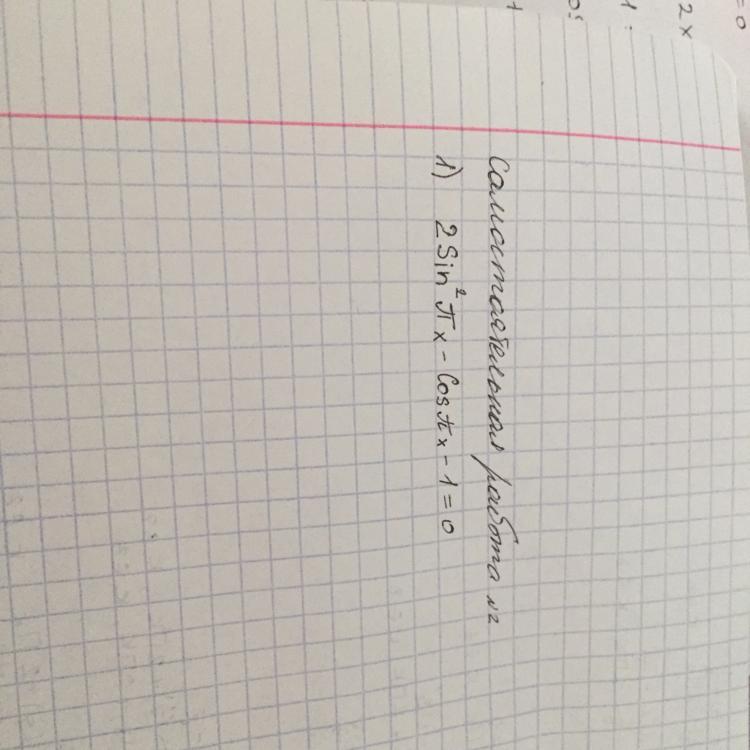 Самостоятельная работа №2
1) 2Sin²πx - Cosπx - 1 = 0